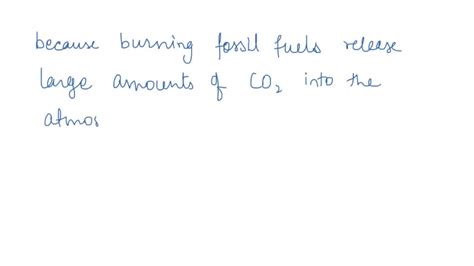 because burning fossil fuels release
large amounts of CO₂ into the
atmos